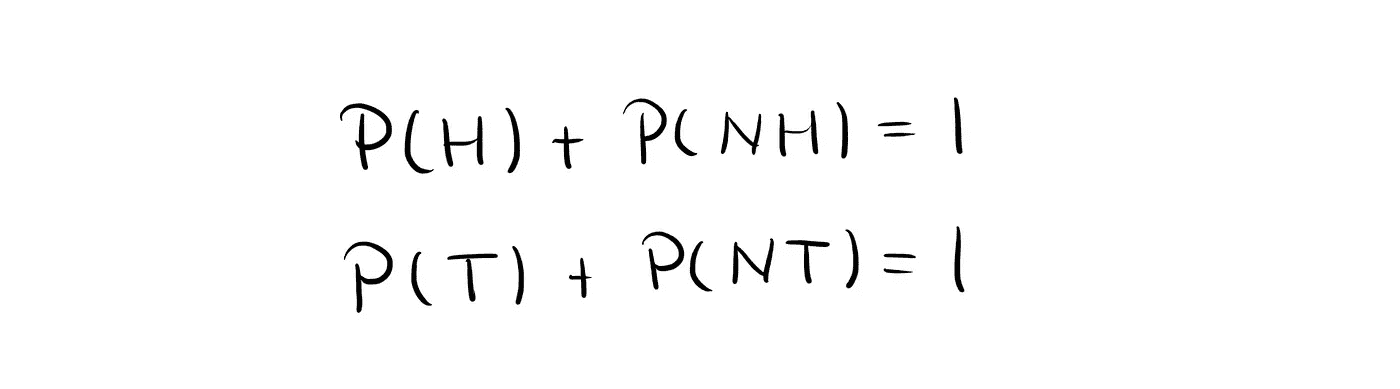 P(H) + P(NH) = 1
P(T) + P(NT) = 1